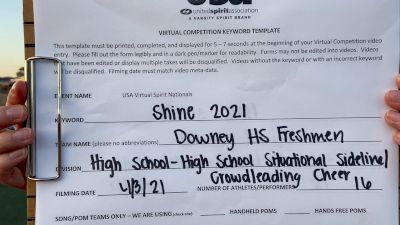 unitedspiritassociation
A VARSITY SPIRIT BRAND
VIRTUAL COMPETITION KEYWORD TEMPLATE
This template must be printed, completed, and displayed for 5 – 7 seconds at the beginning of your Virtual Competition video
entry. Please fill out the form legibly and in a dark pen/marker for readability. Forms may not be edited into videos. Videos
have been edited or display multiple takes will be disqualified. Videos without the keyword or with an incorrect keyword
will be disqualified. Filming date must match video meta-data.
EVENT NAME USA Virtual Spirit Nationals
KEYWORD Shine 2021
TEAM NAME (please no abbreviations) Downey HS Freshmen
DIVISION High School-High School Situational Sideline/
Crowdleading Cheer
FILMING DATE 4/3/21 NUMBER OF ATHLETES/PERFORMERS 16
SONG/POM TEAMS ONLY – WE ARE USING (check one) HANDHELD POMS HANDS FREE POMS